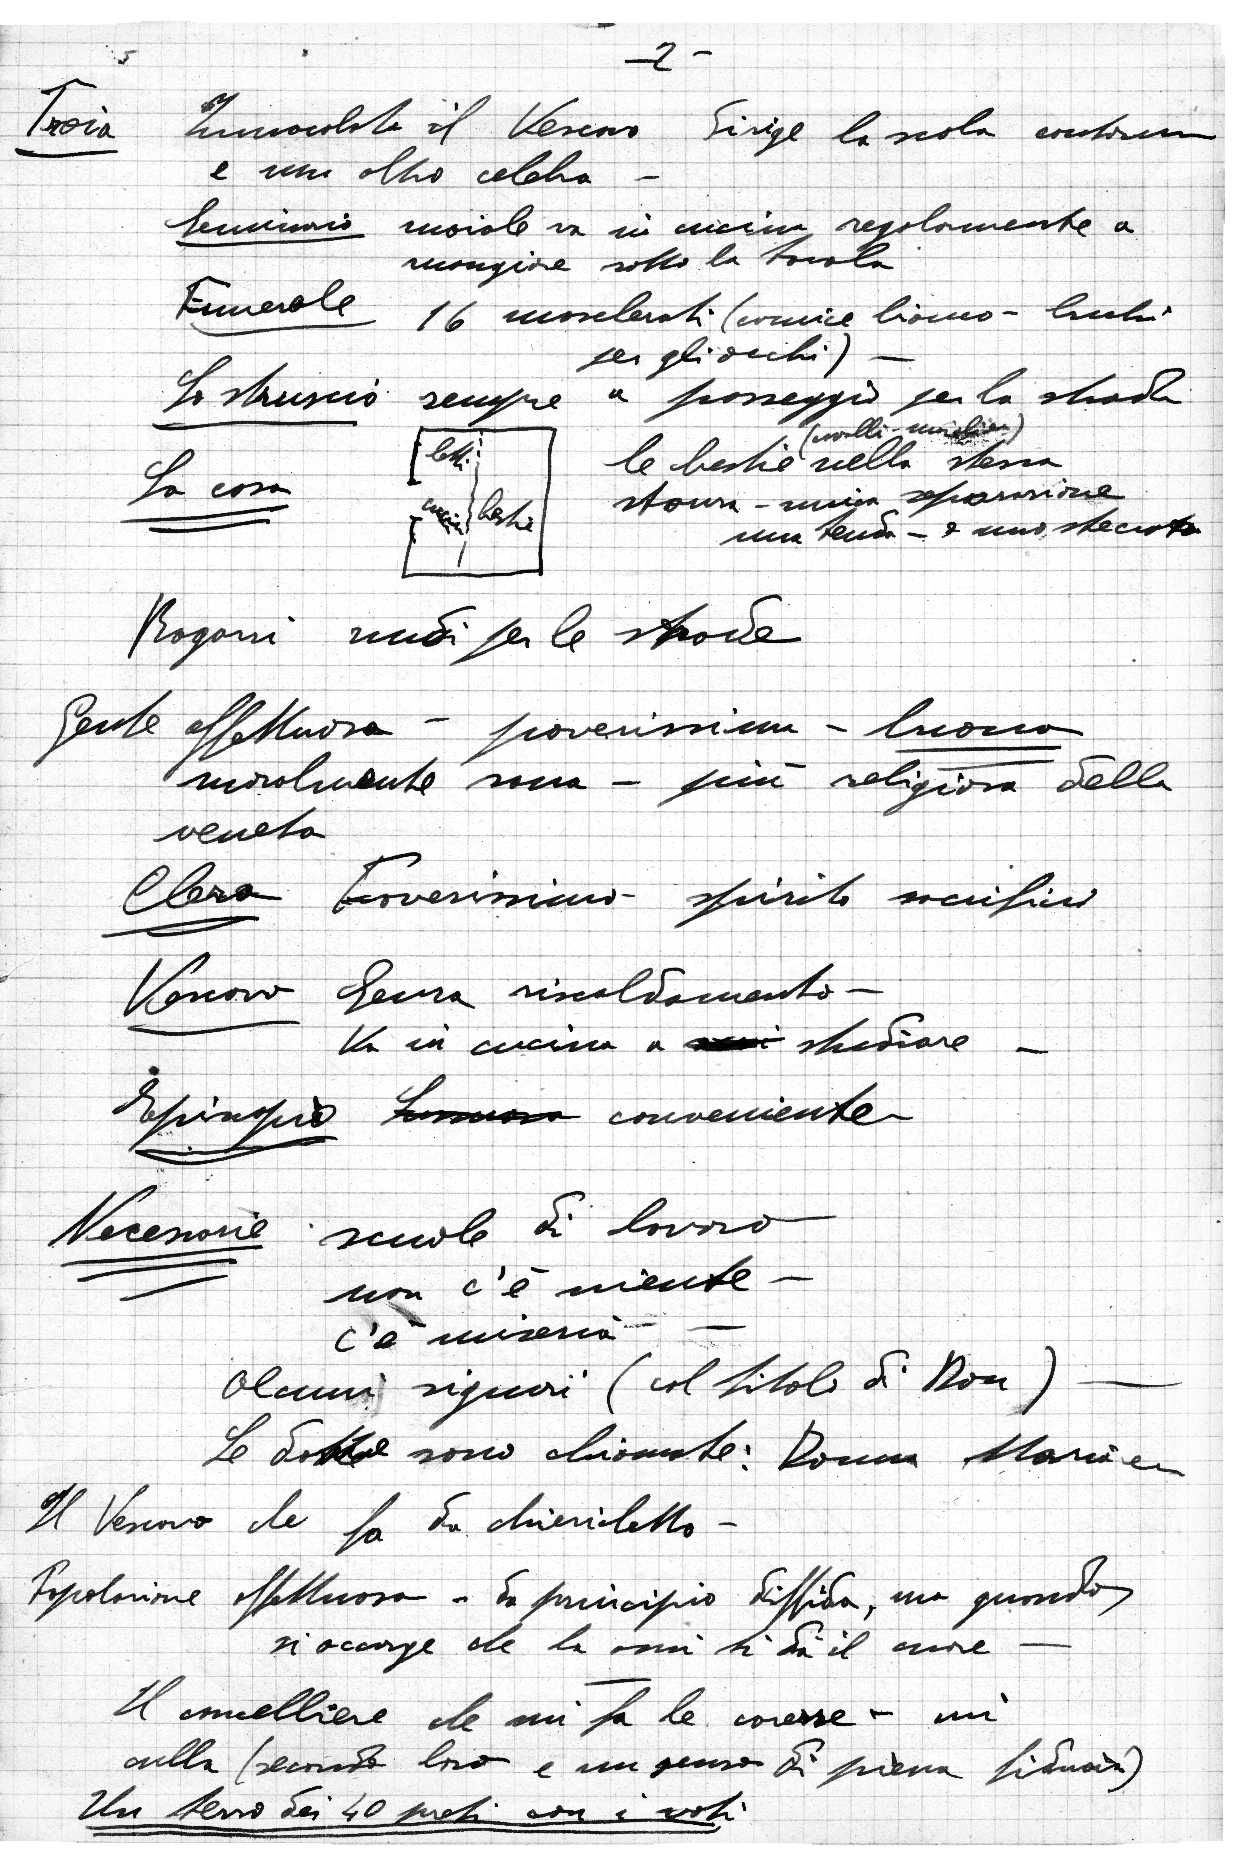 -2-
Troia Immacolata il Vescovo dirige la scola cantorum
e un altro celebra -
Seminario maiale va in cucina regolarmente a
mangiare sotto la tavola
Funerale 16 mascherati (camice bianco - buchi
per gli occhi) -
Lo struscio sempre a passeggio per la strada
(cavalli -
La casa letti le bestie nella stessa
cucina bestie stanza - unica separazione
una tenda - o uno steccato
Ragazzi nudi per le strade
Gente affettuosa - poverissima - buona
moralmente sana - più religiosa della
veneta
Clero Poverissimo - spirito sacrificio
Vescovo Senza riscaldamento -
Va in cucina a studiare -
Episcopio conveniente -
Necessarie scuole di lavoro
non c'è niente -
c'è miseria - -
Alcuni signori (col titolo di Don) -
Le donne sono chiamate: Donna Maria
Il Vescovo che fa da chierichetto -
Popolazione affettuosa - da principio diffida, ma quando
si accorge che la ami ti dà il cuore -
Il cancelliere che mi fa le carezze - mi
culla (secondo loro e un senso di piena fiducia)
Un terzo dei 40 preti con i voti